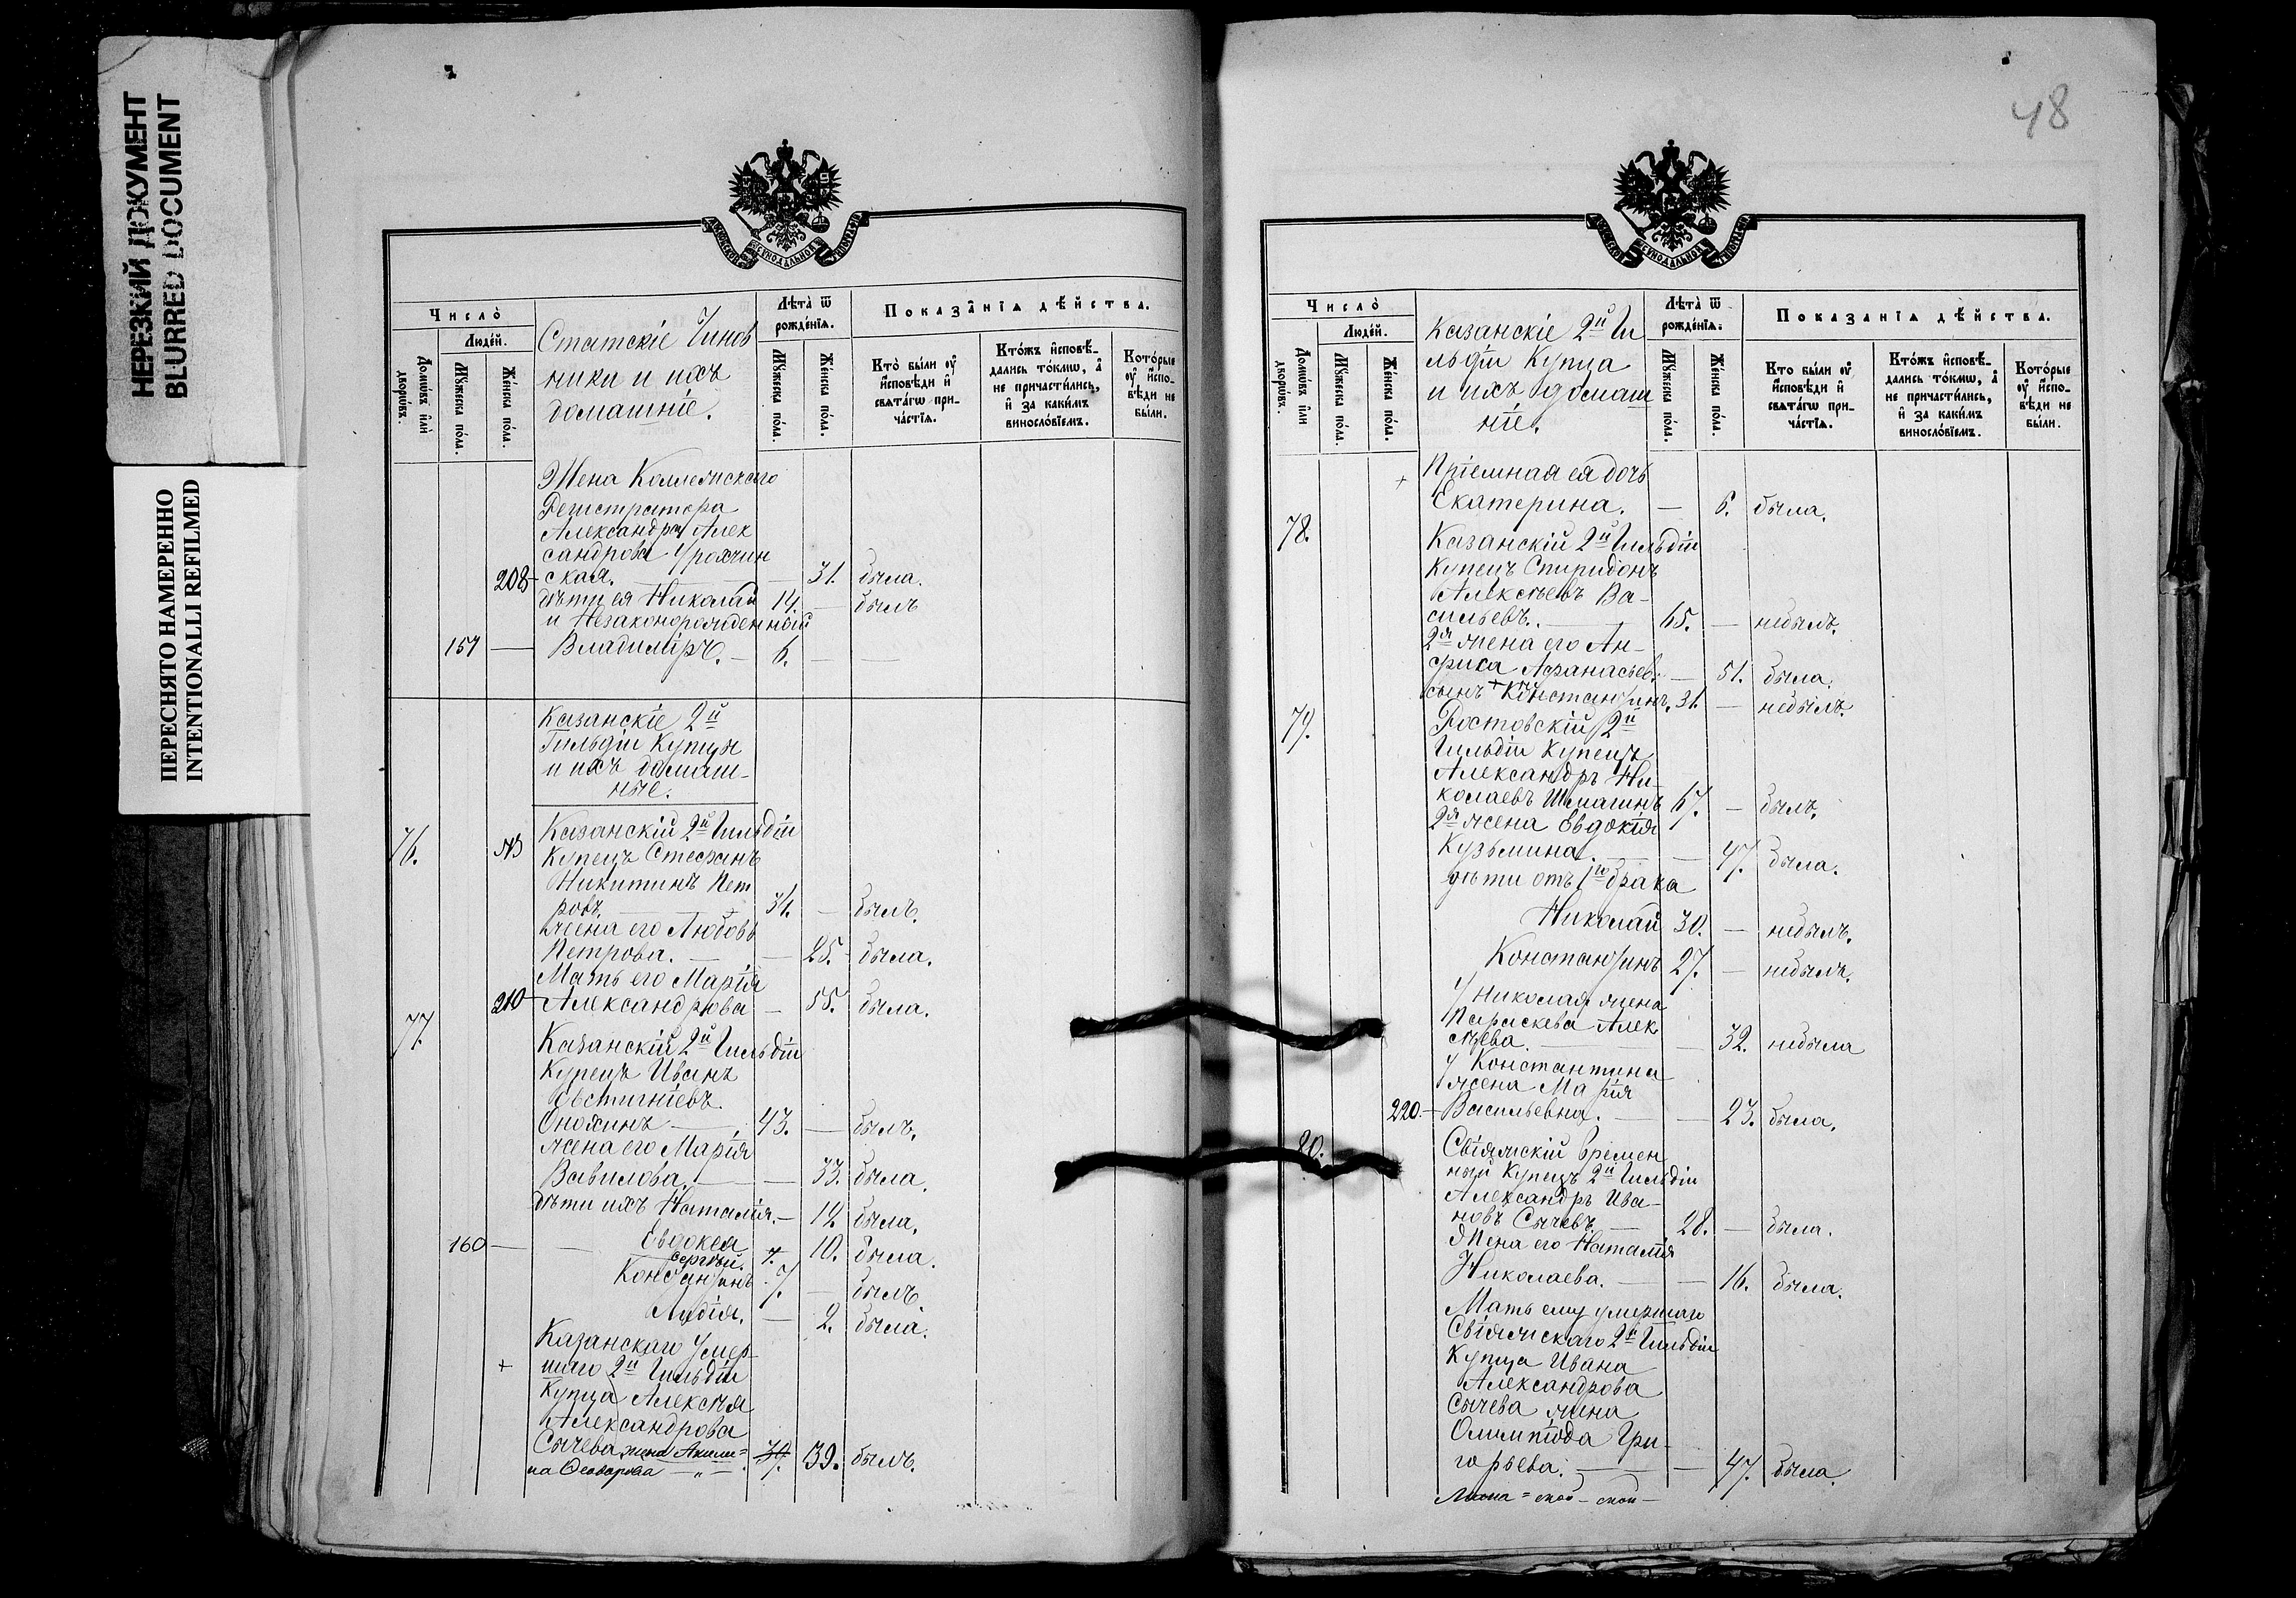 НЕРЕЗКИЙ ДОКУМЕНТ
BLURRED DOCUMENT
ПЕРЕСНЯТО НАМЕРЕННО
INTENTIONALLI REFILMED
МОСКОВСКОЙ СѴНОДАЛЬНОЙ ТИПОГРАФІИ
Число̀
Людéй.
Домѡ́въ и҆лѝ дворѡ́въ.
Мꙋ́жеска по́ла.
Же́нска по́ла.
Статскіе Чинов
ники и ихъ
домашніе.
Лѣта̀ ѿ рожде́нїѧ.
Мꙋ́жеска по́ла.
Же́нска по́ла.
Показа̑нїѧ дѣ́йства.
Кто̀ бы́ли ᲂу҆ и҆сповѣ́ди и҆ свѧта́гѡ прича́стїѧ.
Кто́жъ и҆сповѣ́дались то́кмѡ, а҆ не причасти́лись, и҆ за каки́мъ винослѡ́вїемъ.
Кото́рые ᲂу҆ и҆сповѣ́ди не бы́ли.
Жена Коллежскаго
Регистратора
Александра Алек
сандрова
208 ская. — 31. была.
дѣти ея Николай 14. — былъ
и Незаконорожденный
157 — Владиміръ. — 6. — —
Казанскіе 2й
Гильдіи Купцы
и ихъ домаш-
ные.
76. Казанскій 2й Гильдіи
Купецъ Стефанъ
Никитинъ Пет
ровъ. 34. — былъ.
жена его Любовь
Петрова. — — 25. — была.
Мать его Марія
210 Александрова — 55. была.
77. Казанскій 2й Гильдіи
Купецъ Иванъ
Евстигніевъ
Оножинъ — 43. — былъ.
жена его Марія
Вавилова. — — 33. была.
дѣти ихъ Наталія. — 12 была.
160 — — Евдокея 10. была.
Сергѣй. 7.
Константинъ 7. — былъ
Лидія. — 2. была.
Казанскаго умер-
+ шаго 2й Гильдіи
Купца Алексѣя
Александрова
Сычева жена Акили=
на Ѳеодорова — „ — 39. 39. былъ.
48
МОСКОВСКОЙ СѴНОДАЛЬНОЙ ТИПОГРАФІИ
Число̀
Людéй.
Домѡ́въ и҆лѝ дворѡ́въ.
Мꙋ́жеска по́ла.
Же́нска по́ла.
Казанскіе 2й Ги
льдіи Купца
и ихъ домаш
ніе.
Лѣта̀ ѿ рожде́нїѧ.
Мꙋ́жеска по́ла.
Же́нска по́ла.
Показа̑нїѧ дѣ́йства.
Кто̀ бы́ли ᲂу҆ и҆сповѣ́ди и҆ свѧта́гѡ прича́стїѧ.
Кто́жъ и҆сповѣ́дались то́кмѡ, а҆ не причасти́лись, и҆ за каки́мъ винослѡ́вїемъ.
Кото́рые ᲂу҆ и҆сповѣ́ди не бы́ли.
+ Пріемная ея дочь
Екатерина. — 6. была.
78. Казанскій 2й Гильдіи
Купецъ Спиридонъ
Алексѣевъ Ва-
сильевъ. — 65. — небылъ.
2я жена его Ан-
фиса Афанасьев. — 51. была.
сынъ + Константинъ. 31. — небылъ.
79. Ростовскій 2й
Гильдіи Купецъ
Александръ Ни-
колаевъ Шмагинъ 67. — былъ.
2я жена Евдокія
Кузьмина. — 47. была.
дѣти отъ 1го брака
Николай 30. — небылъ.
Константинъ 27. — небылъ.
У Николая жена
Параскева Алек
сѣева. — — 32. небыла
У Константина
жена Марія
220. — Васильевна. — — 23. была.
80. Свіяжскій времен
ный Купецъ 2й Гильдіи
Александръ Ива-
новъ Сычевъ — 28. — была.
Жена его Наталія
Николаева. — — 16. была.
Мать ему умершаго
Свіяжскаго 2й Гильдіи
Купца Ивана
Александрова
Сычева жена
Олимпіода Гри-
горьева. — — 47. была